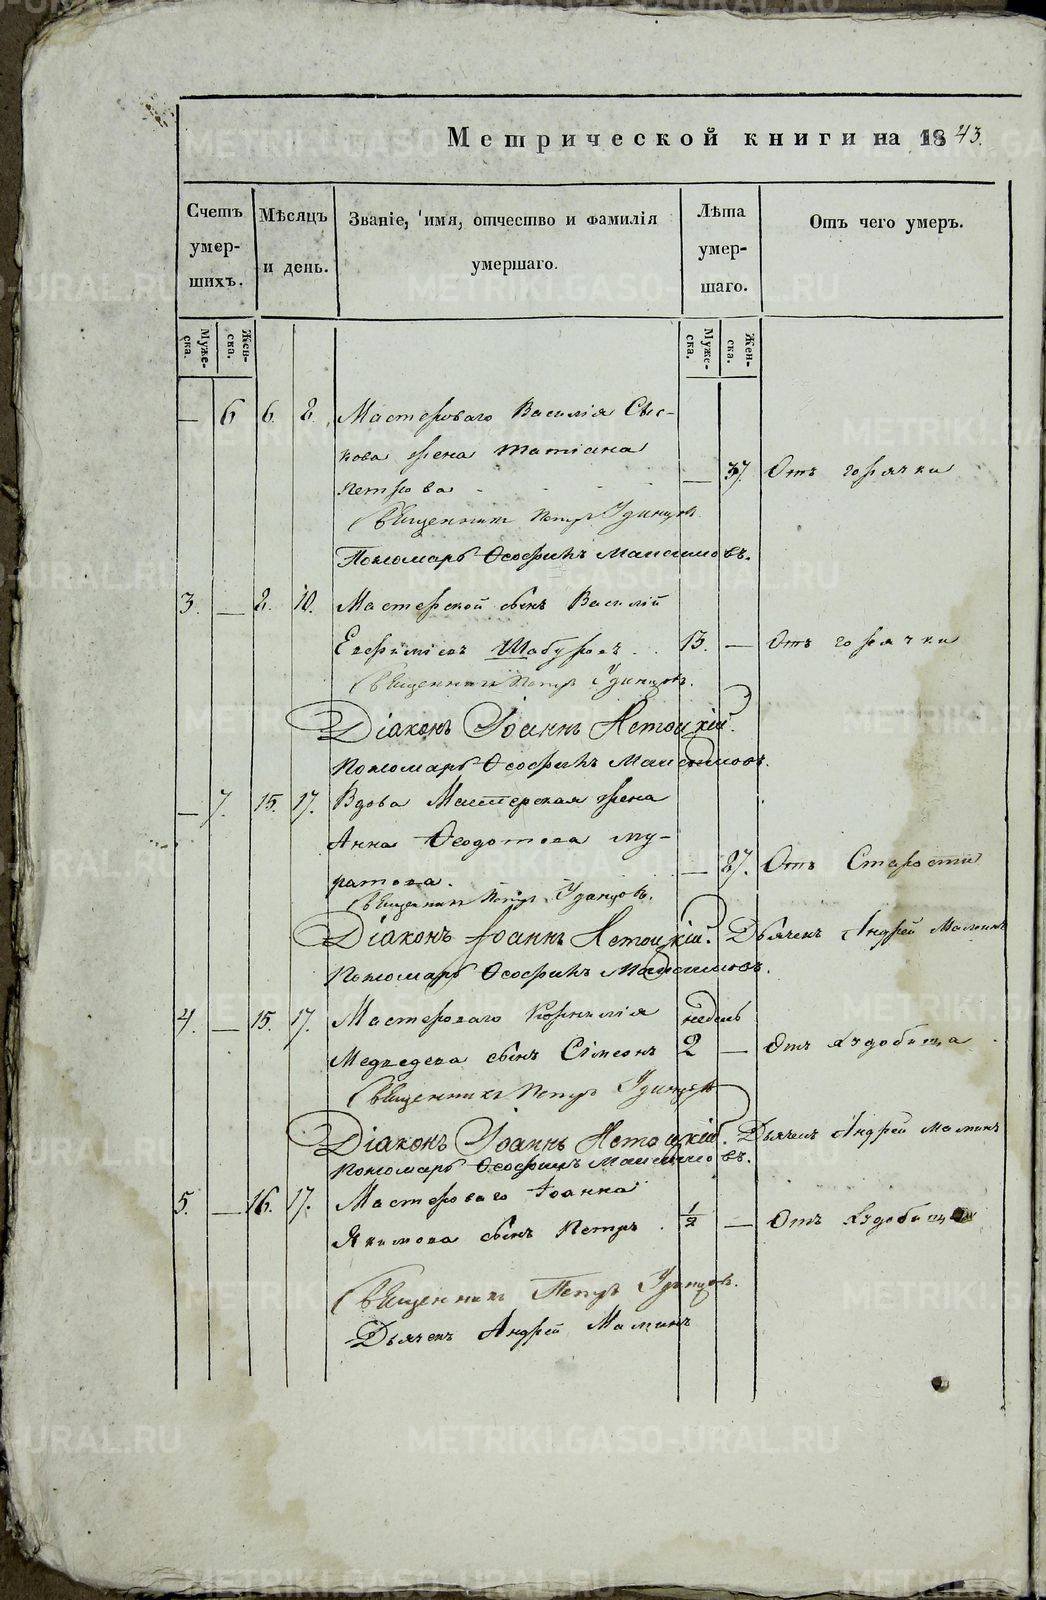 Метрической книги на 1843.
Счетъ умершихъ.
Мѣсяцъ и день.
Званіе, имя, отчество и фамилія умершаго.
Лѣта умершаго.
Отъ чего умеръ.
Мужеска.
Женска.
Мужеска.
Женска.
— 6 6. 8. Мастероваго Василія Сыс-
кова жена Татіана
Петрова — 37. Отъ горячки
Священникъ Петръ Удинцовъ
Пономарь Ѳеофилъ Максимовъ.
3. — 8. 10. Мастерской сынъ Василій
Евфиміевъ Шабуровъ 13. — Отъ горячки
Священникъ Петръ Удинцовъ.
Діаконъ Іоаннъ Нетоцкій.
Пономарь Ѳеофилъ Максимовъ.
— 7. 15. 17. Вдова Мастерская жена
Анна Ѳеодотова Му-
ратова. — 87. Отъ Старости
Священникъ Петръ Удинцовъ.
Діаконъ Іоаннъ Нетоцкій. Дьячекъ Андрей Маминъ
Пономарь Ѳеофилъ Максимовъ.
4. — 15. 17. Мастероваго Корнилія недель
Медведева сынъ Сімеонъ 2 — Отъ
Священникъ Петръ Удинцовъ
Діаконъ Іоаннъ Нетоцкій. Дьячекъ Андрей Маминъ
Пономарь Ѳеофилъ Максимовъ.
5. — 16. 17. Мастероваго Іоанна
Якимова сынъ Петръ. ½ — Отъ
Священникъ Петръ Удинцовъ.
Дьячекъ Андрей Маминъ
METRIKI.GASO-URAL.RU